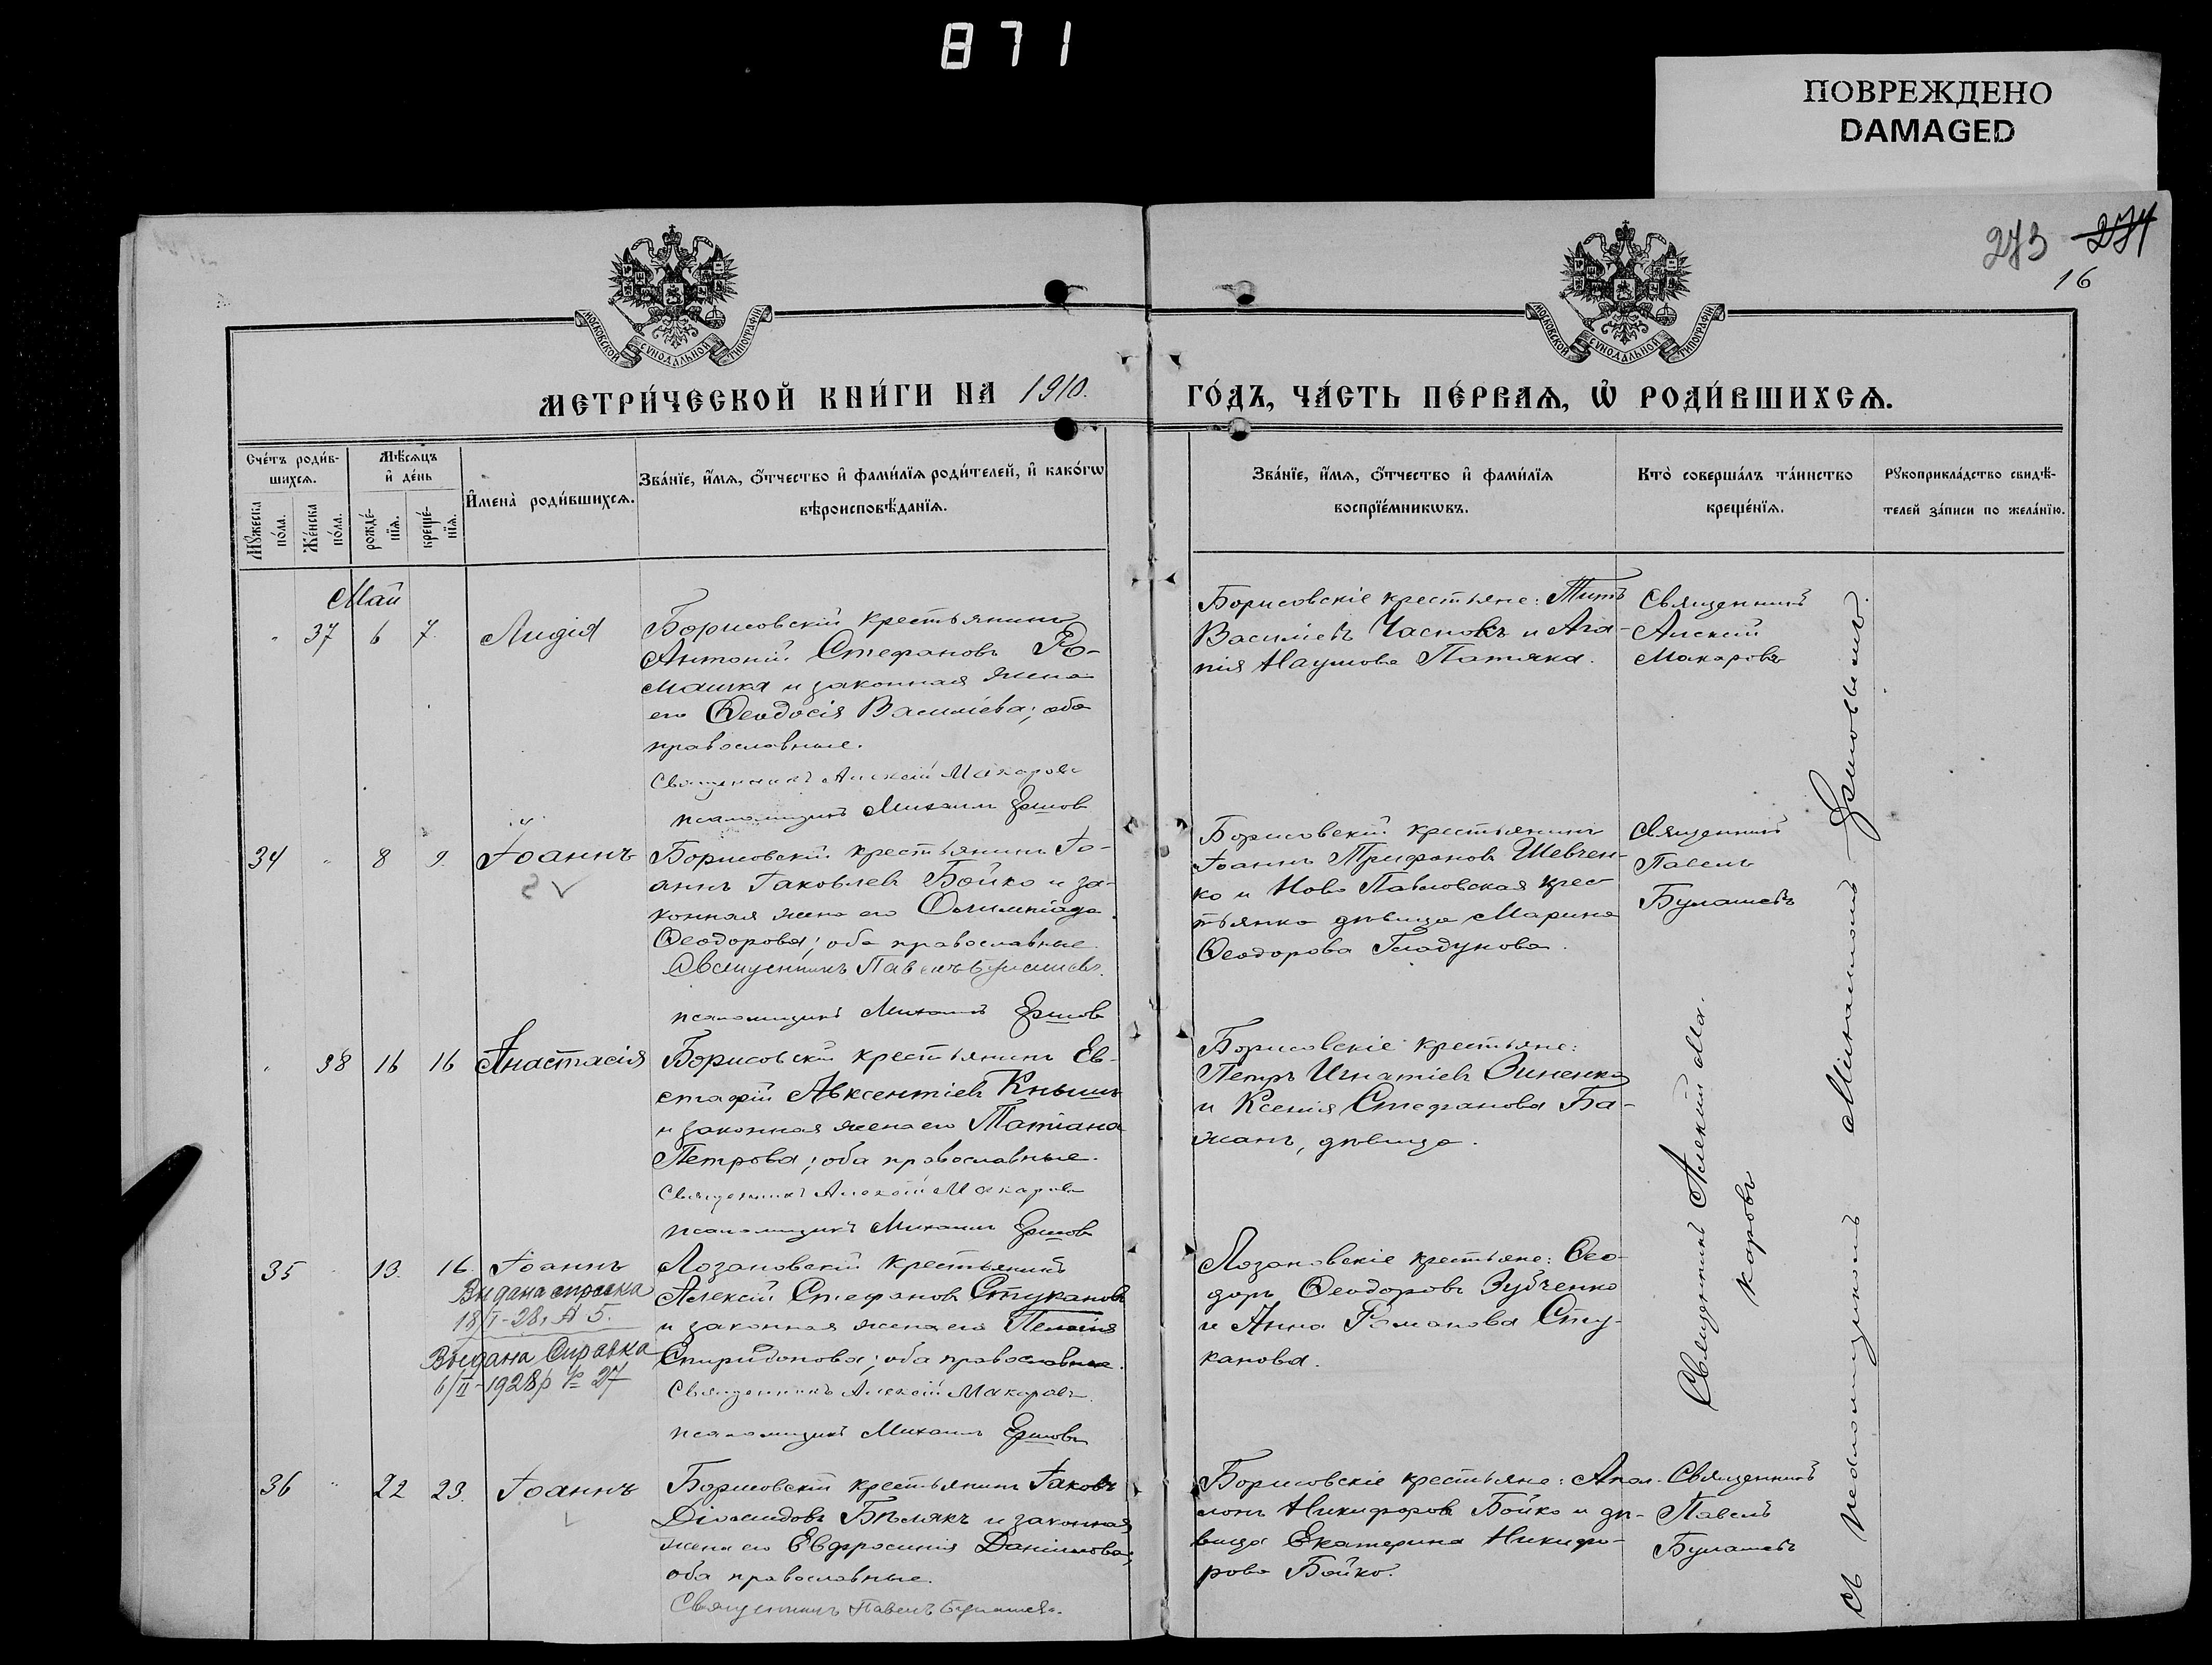 871
ПОВРЕЖДЕНО
DAMAGED
273 274
16
МОСКОВСКОЙ СѴНОДАЛЬНОЙ ТИПОГРАФІИ
МОСКОВСКОЙ СѴНОДАЛЬНОЙ ТИПОГРАФІИ
МЕТРИ́ЧЕСКОЙ КНИ́ГИ НА 1910.
ГО́ДЪ, ЧА́СТЬ ПЕ́РВАѦ, Ѡ РОДИ́ВШИХСѦ.
Сче́тъ роди́в-
шихсѧ.
Мꙋ́жеска по́ла.
Же́нска по́ла.
Мѣ́сѧцъ
и҆ де́нь
рожде́-нїѧ.
креще́-нїѧ.
И҆мена̀ роди́вшихсѧ.
Зва́нїе, и҆́мѧ, ѻ҆́тчество и҆ фами́лїѧ роди́телей, и҆ како́гѡ
вѣроисповѣ́данїѧ.
Зва́нїе, и҆́мѧ, ѻ҆́тчество и҆ фами́лїѧ
воспрїе́мникѡвъ.
Кто̀ соверша́лъ та́инство
креще́нїѧ.
Рꙋкоприкла́дство свидѣ́-
телей за́писи по жела́нїю.
Май
37 6 7. Лидія
Борисовскій крестьянинъ
Антоній Стефановъ Ро-
машка и законная жена
его Ѳеодосія Васильева; оба
православные.
Священникъ Алексій Макаровъ
псаломщикъ Михаилъ Ершовъ
Борисовскіе крестьяне: Титъ
Васильевъ Часновъ и Ага-
пія Наумова Патяка.
Священникъ
Алексій
Макаровъ
34 8 9. Іоаннъ
Борисовскій крестьянинъ Іо-
аннъ Іаковлевъ Бойко и за-
конная жена его Олимпіада
Ѳеодорова; оба православные
Священникъ Павелъ Булашевъ.
псаломщикъ Михаилъ Ершовъ
Борисовскій крестьянинъ
Іоаннъ Трифоновъ Шевчен-
ко и Ново Павловская крес-
тьянка дѣвица Марина
Ѳеодорова Гладунова.
Священникъ
Павелъ
Булашевъ
38 16 16 Анастасія
Борисовскій крестьянинъ Ев-
стафій Авксентіевъ Кнышъ
и законная жена его Татіана
Петрова; оба православные.
Священникъ Алексій Макаровъ
псаломщикъ Михаилъ Ершовъ
Борисовскіе крестьяне:
Петръ Игнатіевъ Зиненко
и Ксенія Стефанова Ба-
жанъ, дѣвица.
35 13. 16. Іоаннъ
Видана справка
18/I-28, № 5.
Выдана Справка
6/II-1928р № 27
Лозановскій крестьянинъ
Алексій Стефановъ Стукановъ
и законная жена его Пелагія
Спиридонова; оба православные.
Священникъ Алексій Макаровъ
псаломщикъ Михаилъ Ершовъ
Лозановскіе крестьяне: Ѳео-
доръ Ѳеодоровъ Зубченко
и Анна Романова Сту-
канова.
Священникъ Алексій Ма-
каровъ
съ псаломщикомъ Михаиломъ Ершовымъ.
36 22 23. Іоаннъ
Борисовскій крестьянинъ Іаковъ
Діомидовъ Бѣлякъ и законная
жена его Евфросинія Даніилова;
оба православные.
Священникъ Павелъ Булашевъ.
Борисовскіе крестьяне: Апол-
лонъ Никифоровъ Бойко и дѣ-
вица Екатерина Никифо-
рова Бойко.
Священникъ
Павелъ
Булашевъ